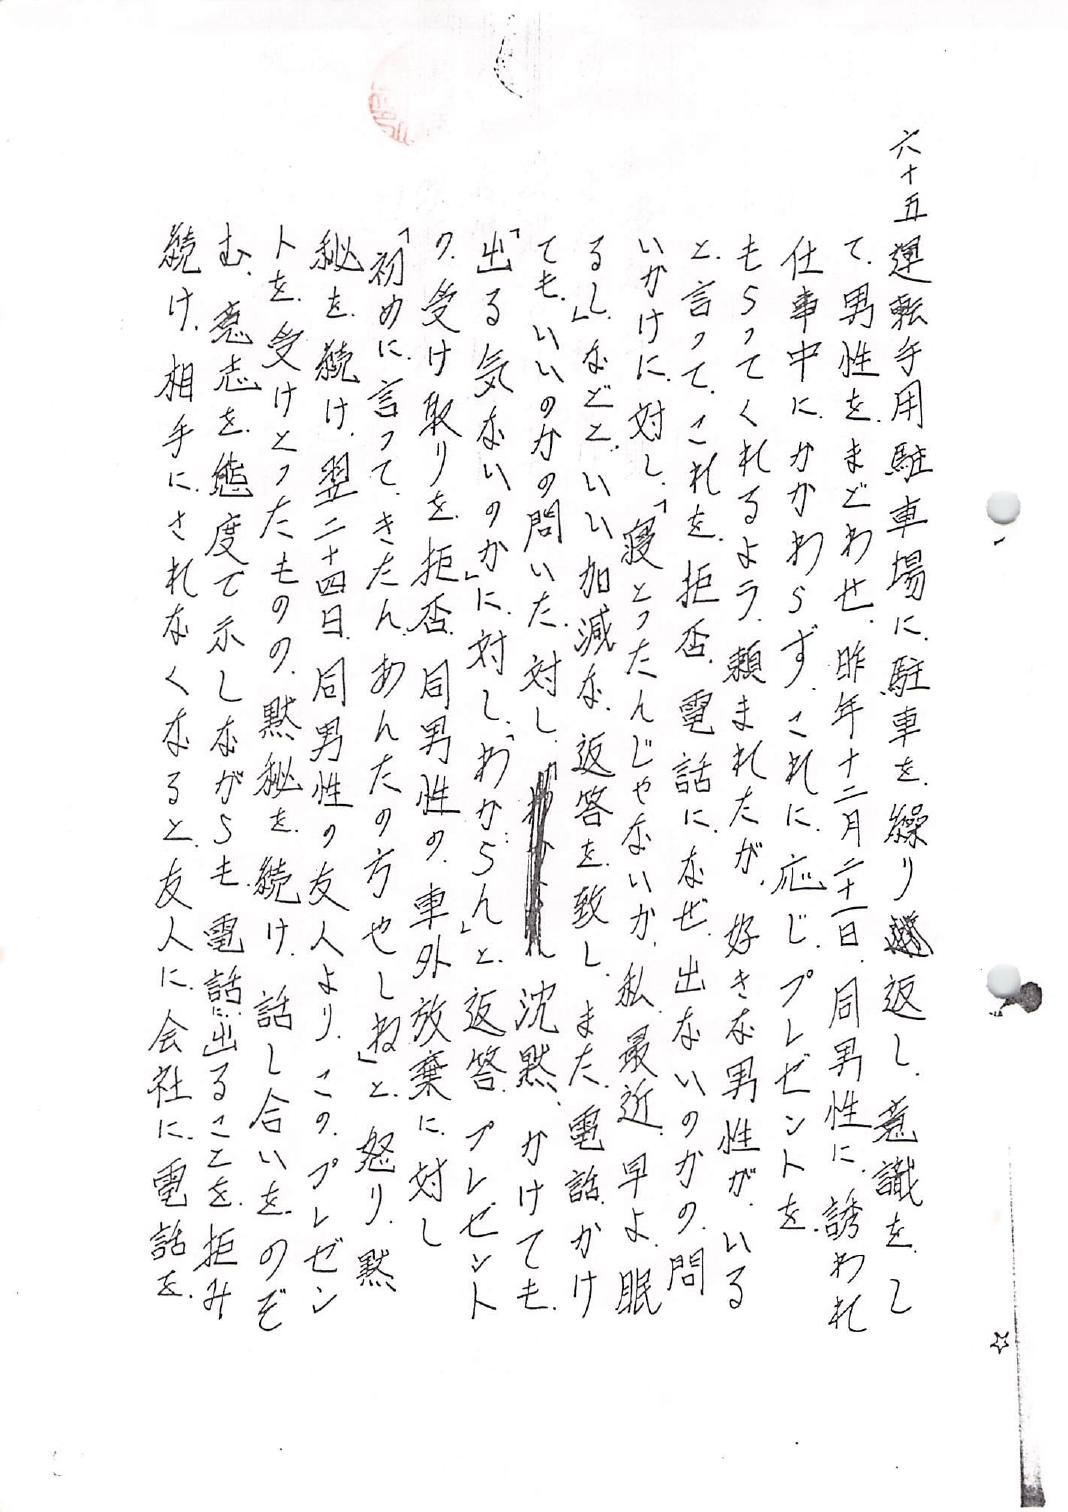 六十五運転手用駐車場に、駐車を、繰り返し、意識を、し
て、男性を、まどわせ、昨年十二月二十一日、同男性に、誘われ
仕事中に、かかわらず、これに、応じ、プレゼントを、
もらってくれるよう、頼まれたが、好きな男性が、いる
と、言って、これを、拒否、電話に、なぜ、出ないのかの、問
いかけに、対し、「寝とったんじゃないか、私、最近、早よ、眠
るし」などと、いい加減な、返答を、致し、また、電話、かけ
ても、いいのかの問いた、対し、沈黙、かけても、
「出る気ないのか」に、対し、「わからん」と、返答、プレゼント
の、受け取りを、拒否、同男性の、車外放棄に、対し
「初めに、言って、きたん、あんたの方やしね」と、怒り、黙
秘を、続け、翌二十四日、同男性の友人より、この、プレゼン
トを、受けとったものの、黙秘を、続け、話し合いを、のぞ
む、意志を、態度で示しながらも、電話に、出ることを、拒み
続け、相手に、されなくなると、友人に、会社に、電話を、